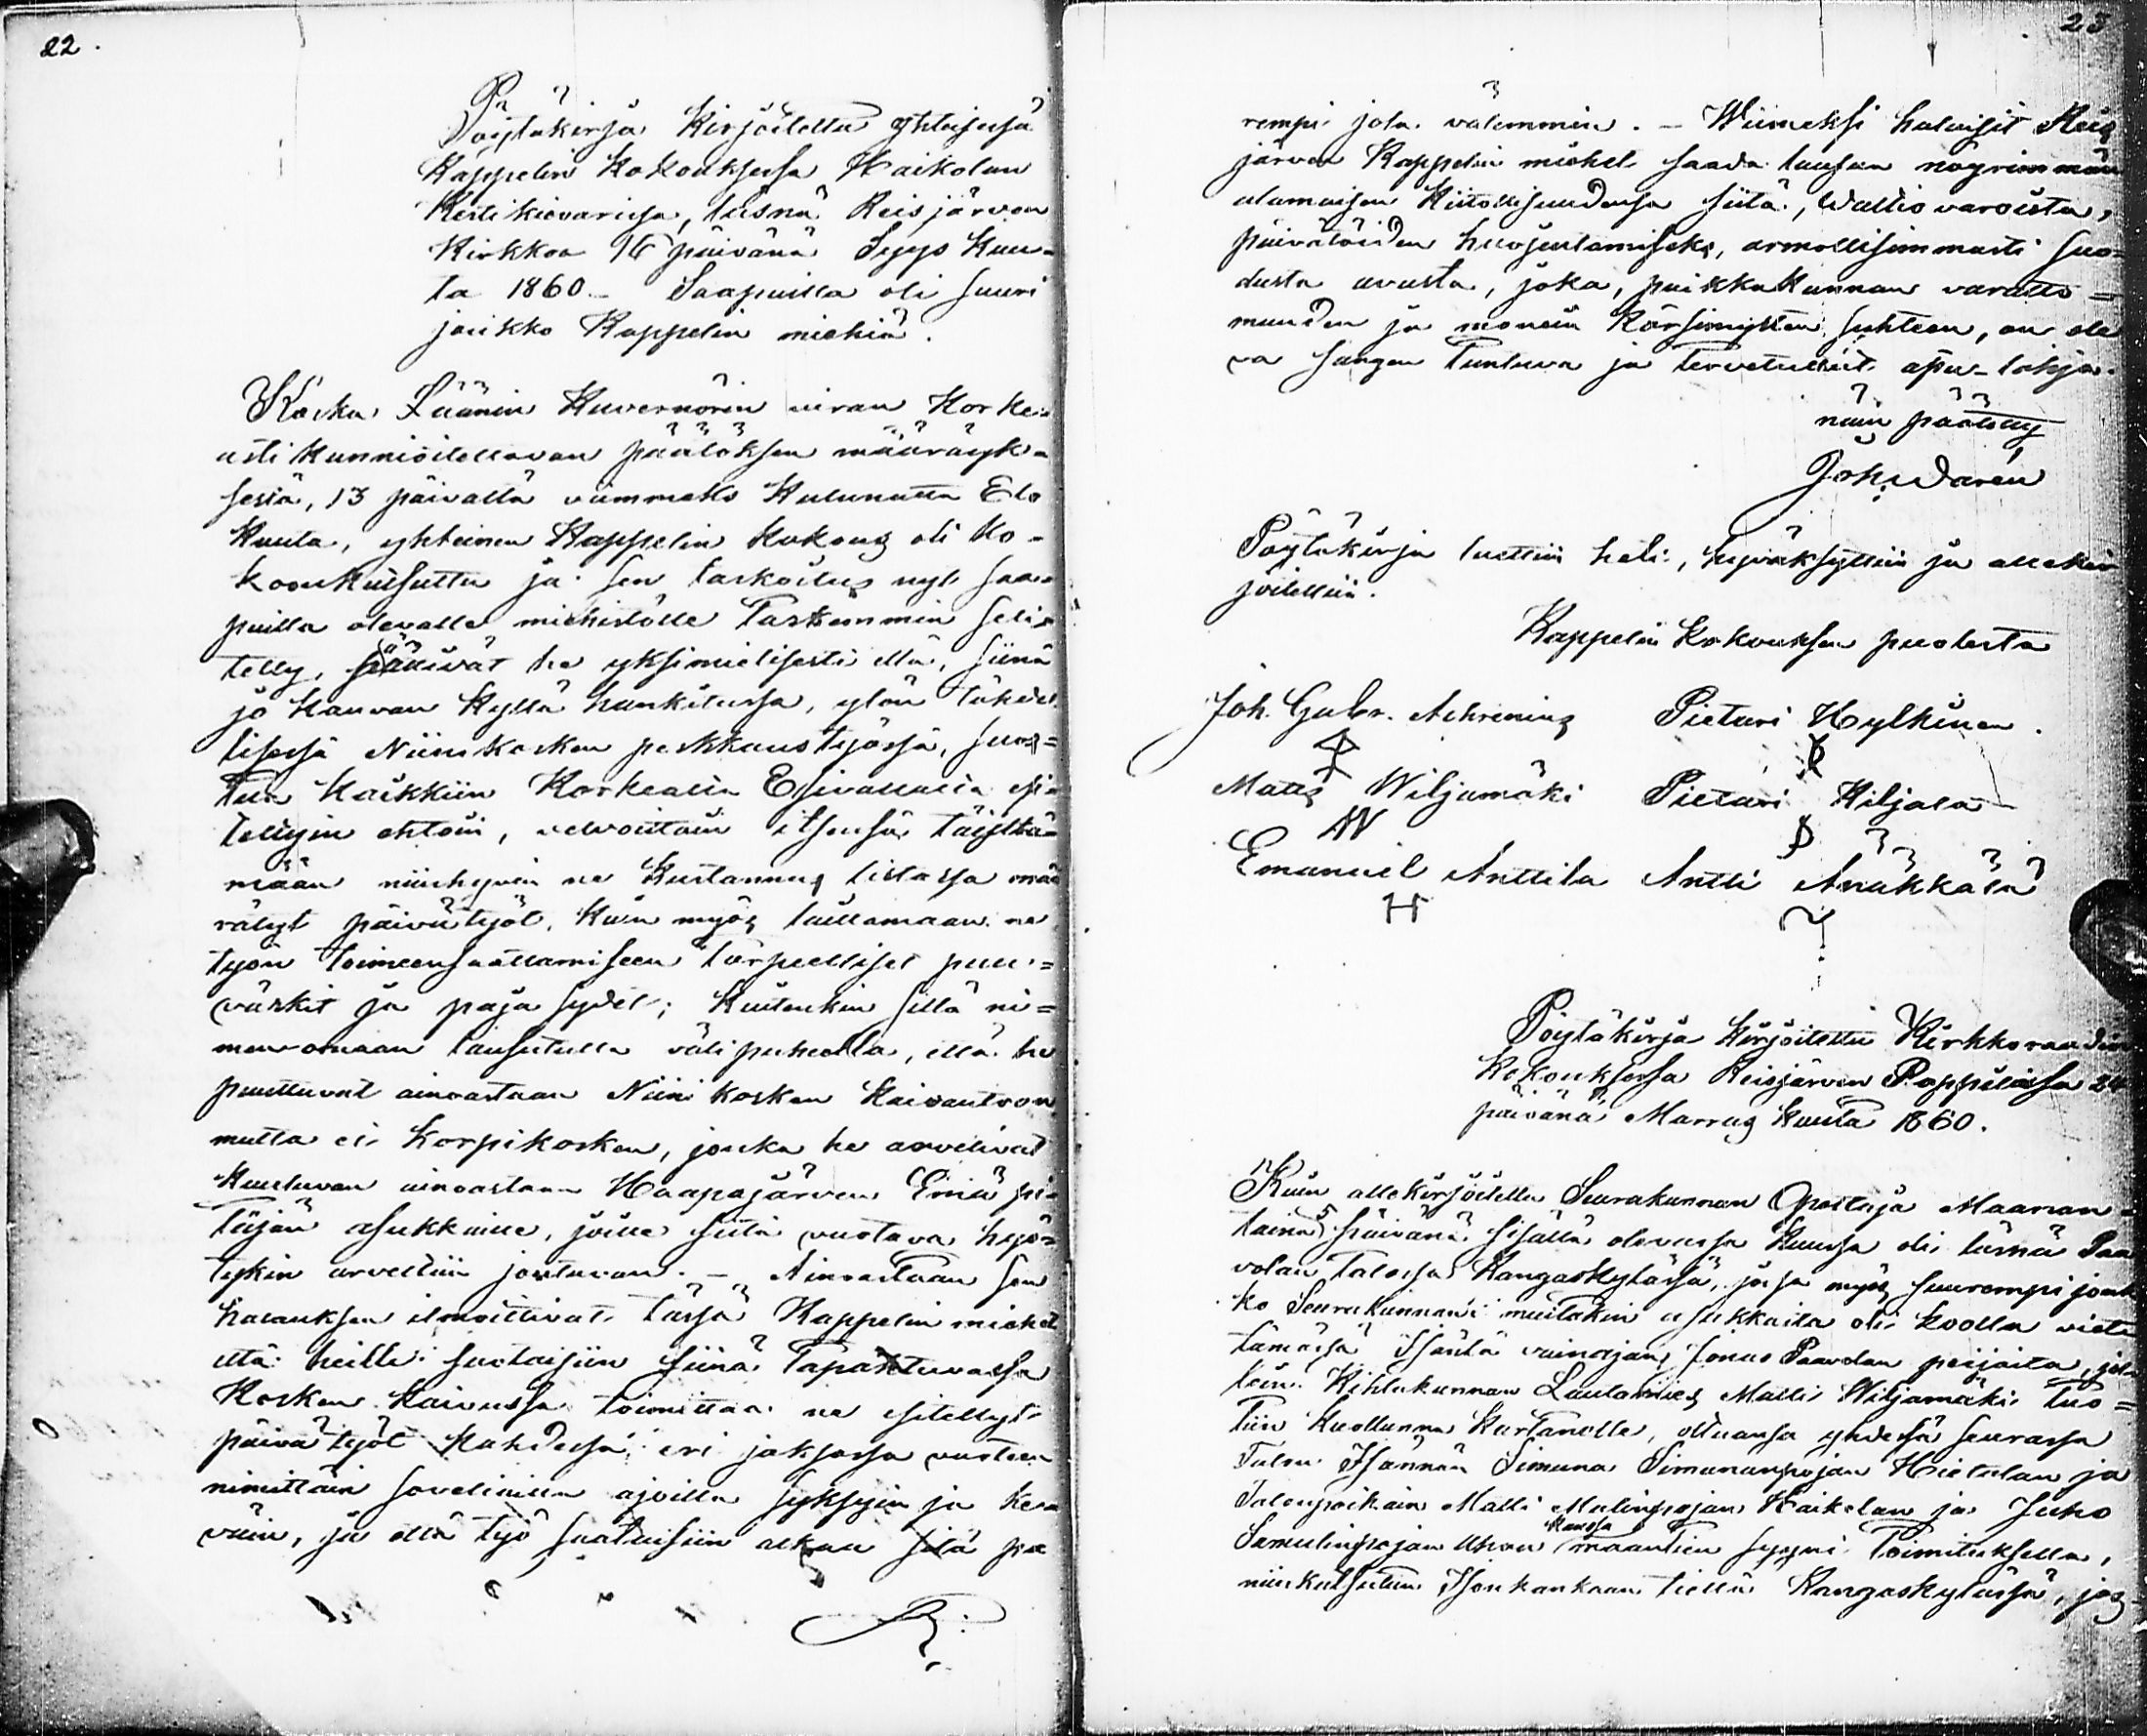 22.
Pöytäkirja Kirjoitettu yhteisessä
Kappelin Kokouksessa Kaikolan
Kestikievarissa, läsnä Reisjärven
Kirkkoa 16 päivänä Syys Kuu-
ta 1860. Saapuilla oli suuri
joukko Kappelin miehiä.
Koska Läänin Kuvernörin viran Korke-
asti Kunnioitettavan päätöksen määräyk-
sestä, 13 päivältä viimmeks Kulunutta Elo
Kuuta, yhteinen Kappelin Kokous oli Ko-
koonkutsuttu ja sen tarkoitus nyt saa-
puilla olevalle miehistölle Tarkemmin seli-
telty, päättivät he yksimielisesti että, siinä
jo Kauvan Kyllä hankitussa, ylön tähdel
lisessä Niinikosken perkkaustyössä, suos-
tua Kaikkiin Korkealta Esivallalta esi
teltyin ehtoin, velvoitain itsensä täyttä-
mään niinhyvin ne Kustannus listassa mää
rätyt päivätyöt, Kuin myös laittamaan ne
työn Toimeensaattamiseen tarpeelliset puu-
värkit ja paja sydet; Kuitenkin sillä ni-
menomaan lausutulla välipuheella, että he
puuttuvat ainoastaan Niini kosken Kaivantoon
mutta ei Korpikosken, jonka he arvelivat
Kuuluvan ainoastaan Haapajärven Emä pi-
täjän asukkaille, joille siitä vastava hyö-
tykin arveltiin joutuvan. — Ainoastaan sen
halauksen ilmoittivat tässä Kappelin miehet
että heille suotaisiin siinä Tapahtuvassa
Kosken Kaivussa toimittaa ne esitellyt
päivätyöt Kahdessa eri jaksossa vuoteen
nimittäin soveliailla ajoilla syksyin ja Ke-
väin, ja että työ saataisiin alkaa sitä pa
23
rempi jota välemmin. — Wiimeksi halaisit Reis
järven Kappelin miehet saada lausua nöyrimmän
alamaisen Kiitollisuudensa siitä, Waltio varoista,
päivätöiden huojentamiseks, armollisimmasti suo-
dusta avusta, joka, paikkakunnan varatto-
muuden ja monein Kärsimysten suhteen, on ole
va sangen Tuntuva ja Tervetullut apu-lahja.
näin päätetty
Joh. Warén
Pöytäkirja luettiin heti, hyväksyttiin ja allekir
joitettiin.
Kappelin Kokouksen puolesta
Joh. Gabr. Achrenius Pietari Hylkinen.
Matts Wiljamäki Pietari Kiljala
Emanuel Anttila Antti Änäkkälä
Pöytäkirja Kirjoitettu Kirkkoraadin
Kokouksessa Reisjärven Pappilassa 24
päivänä Marras Kuuta 1860.
Kuin allekirjoitettu Seurakunnan Opettaja Maanan-
taina päivänä sisällä olevassa Kuussa oli läsnä Paa
volan Talossa Kangaskylässä, jossa myös suurempi jouk
ko Seurakunnan muitakin asukkaita oli koolla viet
tämässä Isäntä vainajan Jonas Paavolan peijaita, jol
loin Kihlakunnan Lautamies Matti Wiljamäki Tuo-
tiin Kuolluna Kartanolle, oltuansa yhdessä seurassa
Talon Isännän Simuna Simunanpojan Hietalan ja
Talonpoikain Matti Matinpojan Kaikolan ja Juho
Samulinpojan Ahon Kanssa maantien syyni Toimituksella,
niin kutsutun Isonkankaan tiellä Kangaskylässä, jos